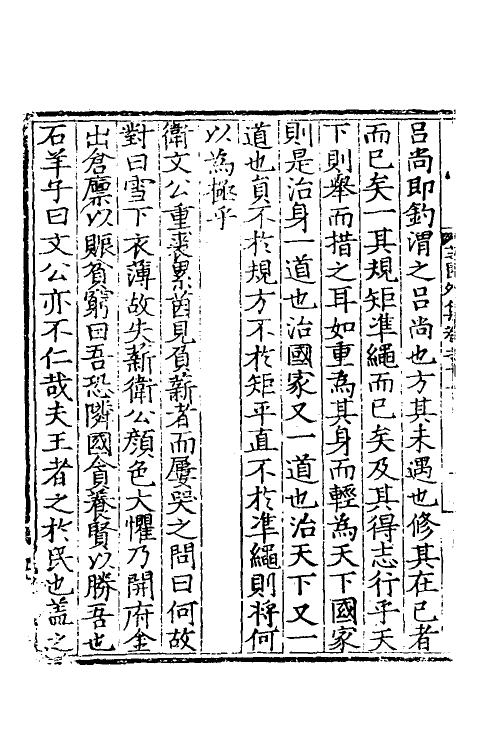 呂尚即釣渭之呂尚也方其未遇也修其在已者
而已矣一其規矩準繩而已矣及其得志行乎天
下則舉而措之耳如重為其身而輕為天下國家
則是治身一道也治國家又一道也治天下又一
道也員不於規方不於矩平直不於準繩則將何
以為極乎
衛文公重裘累茵見負薪者而屢哭之問曰何故
對曰雪下衣薄故失薪衛公顏色大懼乃開府金
出倉廪以賑貧窮曰吾恐隣國貪養賢以勝吾也
石羊子曰文公亦不仁哉夫王者之於民也盖之